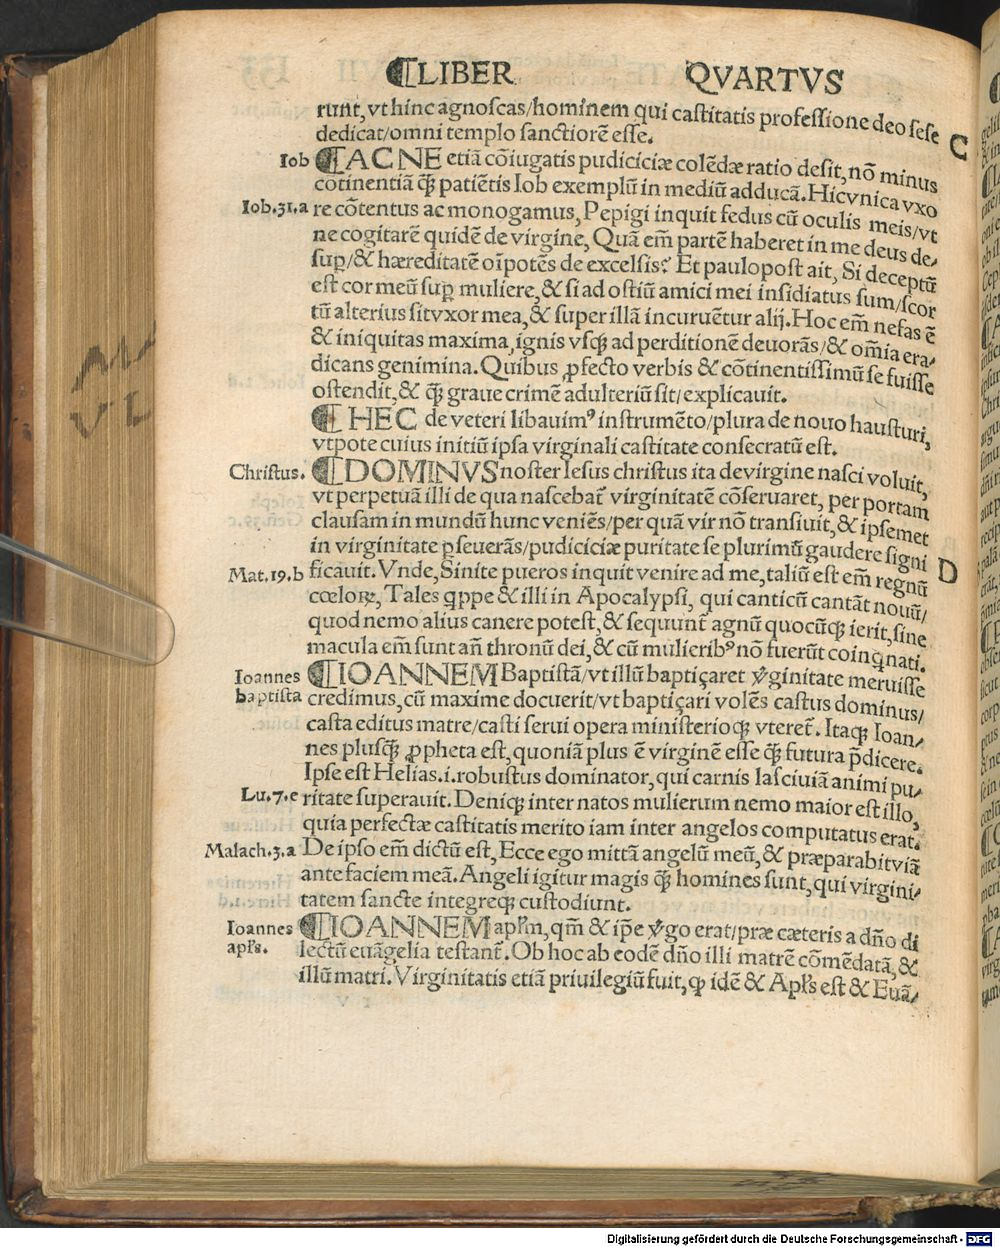 ¶LIBER QVARTVS
runt, vt hinc agnoſcas/hominem qui caſtitatis profeſſione deo ſeſe
dedicat/omni templo ſanctiorē eſſe. C
Iob ¶AC NE etiā cōiugatis pudiciciæ colēdæ ratio deſit, nō minus
cōtinentiā q̄ȝ patiētis Iob exemplū in mediū adducā. Hic vnica vxo
Iob.31.a re cōtentus ac monogamus, Pepigi inquit fedus cū oculis meis/vt
ne cogitarē quidē de virgine, Quā em̄ partē haberet in me deus de⸗
ſuꝑ/& hæreditatē oīpotēs de excelſis? Et paulo poſt ait, Si deceptū
eſt cor meū ſuꝑ muliere, & ſi ad oſtiū amici mei inſidiatus ſum/ſcor
tū alterius ſit vxor mea, & ſuper illā incuruētur alij. Hoc em̄ nefas ē
& iniquitas maxima, ignis vſqȝ ad perditionē deuorās/& om̄ia era⸗
dicans genimina. Quibus ꝓfecto verbis & cōtinentiſſimū ſe fuiſſe
oſtendit, & q̄ȝ graue crimē adulteriū ſit/explicauit.
¶HEC de veteri libauimꝰ inſtrumēto/plura de nouo hauſturi,
vtpote cuius initiū ipſa virginali caſtitate conſecratū eſt.
Chriſtus. ¶DOMINVS noſter Ieſus chriſtus ita de virgine naſci voluit,
vt perpetuā illi de qua naſcebat̄ virginitatē cōſeruaret, per portam
clauſam in mundū hunc veniēs/per quā vir nō tranſiuit, & ipſemet
in virginitate ꝑſeuerās/pudiciciæ puritate ſe plurimū gaudere ſigni
Mat.19.b ficauit. Vnde, Sinite pueros inquit venire ad me, taliū eſt em̄ regnū D
cœloꝝ, Tales q̄ppe & illi in Apocalypſi, qui canticū cantāt nouū/
quod nemo alius canere poteſt, & ſequunt̄ agnū quocūqȝ ierit, ſine
macula em̄ ſunt an̄ thronū dei, & cū mulieribꝰ nō fuerūt coinq̄nati.
Ioannes ¶IOANNEM Baptiſtā/vt illū baptiçaret v̄ginitate meruiſſe
baptiſta credimus, cū maxime docuerit/vt baptiçari volēs caſtus dominus/
caſta editus matre/caſti ſerui opera miniſterioqȝ vteret̄. Itaqȝ Ioan⸗
nes pluſq̄ȝ ꝓpheta eſt, quoniā plus ē virginē eſſe q̄ȝ futura p̄dicere.
Ipſe eſt Helias.i.robuſtus dominator, qui carnis laſciuiā animi pu⸗
Lu.7.e ritate ſuperauit. Deniqȝ inter natos mulierum nemo maior eſt illo,
quia perfectæ caſtitatis merito iam inter angelos computatus erat.
Malach.3.a De ipſo em̄ dictū eſt, Ecce ego mittā angelū meū, & præparabit viā
ante faciem meā. Angeli igitur magis q̄ȝ homines ſunt, qui virgini⸗
tatem ſancte integreqȝ cuſtodiunt.
Ioannes ¶IOANNEM apl̄m, qm̄ & ip̄e v̄go erat/præ cæteris a dn̄o di
apl̄s. lectū euāgelia teſtant̄. Ob hoc ab eodē dn̄o illi matrē cōmēdatā, &
illū matri. Virginitatis etiā priuilegiū fuit, ꝙ idē & Apl̄s eſt & Euā⸗
Digitalisierung gefördert durch die Deutsche Forschungsgemeinschaft - DFG